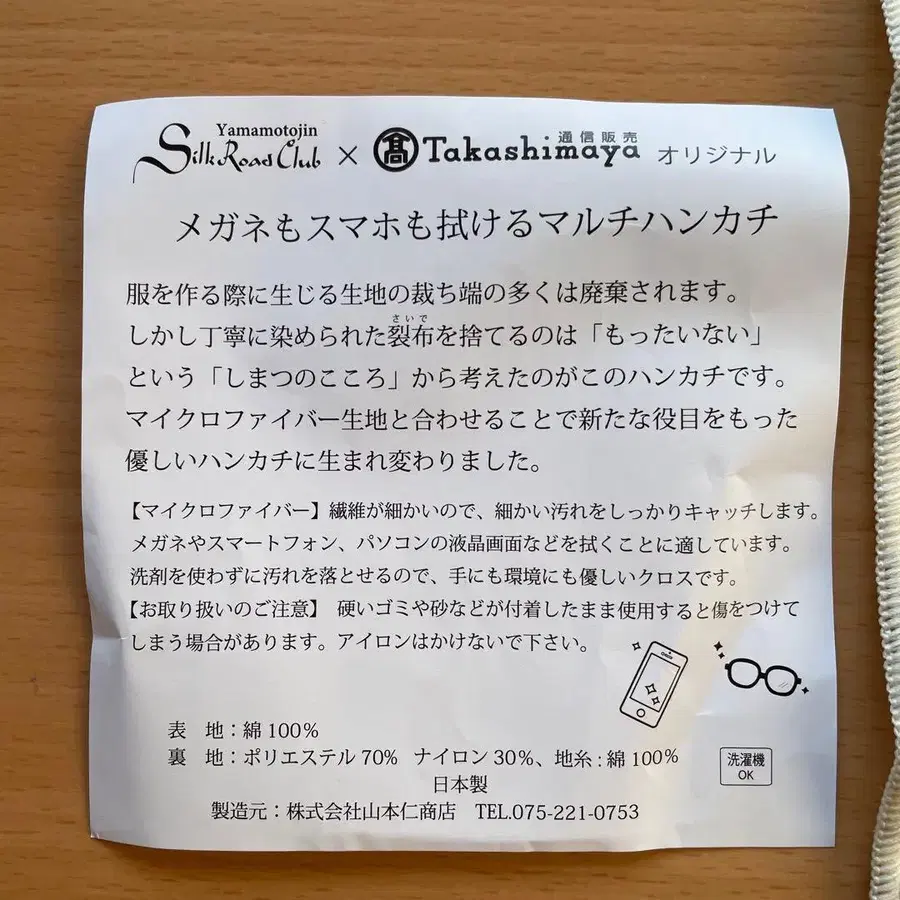 Yamamotojin
Silk Road Club × 髙 Takashimaya 通信販売 オリジナル
メガネもスマホも拭けるマルチハンカチ
服を作る際に生じる生地の裁ち端の多くは廃棄されます。
さいで
しかし丁寧に染められた裂布を捨てるのは「もったいない」
という「しまつのこころ」から考えたのがこのハンカチです。
マイクロファイバー生地と合わせることで新たな役目をもった
優しいハンカチに生まれ変わりました。
【マイクロファイバー】繊維が細かいので、細かい汚れをしっかりキャッチします。
メガネやスマートフォン、パソコンの液晶画面などを拭くことに適しています。
洗剤を使わずに汚れを落とせるので、手にも環境にも優しいクロスです。
【お取り扱いのご注意】 硬いゴミや砂などが付着したまま使用すると傷をつけて
しまう場合があります。アイロンはかけないで下さい。
表 地：綿 100%
裏 地：ポリエステル 70% ナイロン 30%、地糸：綿 100%
洗濯機
OK
日本製
製造元：株式会社山本仁商店 TEL.075-221-0753